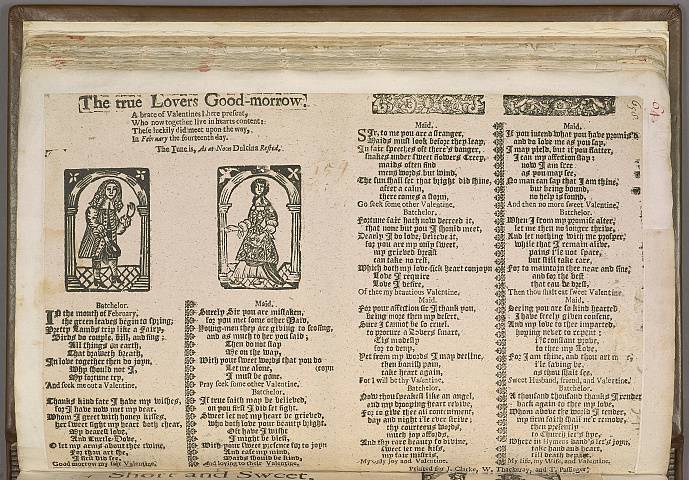 The true Lovers Good-morrow.
A brace of Valentines I here present,
Who now together live in hearts content:
These luckily did meet upon the way,
In February the fourteenth day.
The Tune is, As at Noon Dulcina Rested.
Batchelor.
IN the month of February,
the green leaves begin to spring;
Pretty Lambs trip like a Fairy,
Birds do couple, bill, and sing;
All things on earth,
That draweth breath,
In love together then do joyn,
Why should not I,
My fortune try,
And seek me out a Valentine.
Thanks kind fate I have my wishes,
for I have now met my dear,
Whom I greet with honey kisses,
her sweet sight my heart doth chear,
My dearest love,
And Turtle-Dove,
O let my arms about thee twine,
For thou art she,
I first did see,
Good morrow my fair Valentine.
Maid.
Surely Sir you are mistaken,
for you met some other Maid,
Young-men they are given to scoffing,
and as much to her you said;
Then do not stay
Me on the way,
With your sweet words that you do
Let me alone, (coyn
I must be gone,
Pray seek some other Valentine.
Batchelor.
If true faith may be believed,
on you first I did set sight,
Sweet let not my heart be grieved,
who doth love your beauty bright,
Otherwise I wisht
I might be blest,
With your sweet presence for to joyn
And ease my mind,
Maids should be kind,
And loving to their Valentine.
Maid.
SIr, to me you are a stranger,
Maids must look before they leap,
In fair speeches oft there's danger,
snakes under sweet flowers creep,
maids often find
meny words but wind,
The sun shall set that bright did shine,
after a calm,
there comes a storm,
Go seek some other Valentine.
Batchelor.
Fortune sure hath now decreed it,
that none but you I should meet,
Dearly I do love, believe it,
for you are my only sweet,
my grieved breast
can take no rest,
Which doth my love-sick heart conjoyn
Love I require
Love I desire,
Of thee my beautious Valentine.
Maid.
For your affection Sir I thank you,
being more then my desert,
Sure I cannot be so cruel,
to procure a Lovers smart,
It is modesty
for to deny,
Yet from my words I may decline,
then banish pain,
take heart again,
For I will be thy Valentine.
Batchelor.
Now thou speakest like an angel,
and my drooping heart revive,
For to give thee all contentment,
day and night I'le ever strive;
thy courteous words,
much joy affords,
And thy rare beauty so divine,
sweet let me kiss,
my fair mistris,
My only joy and Valentine.
Maid.
If you intend what you have promis'd
and do love me as you say,
I may yield, but if you flatter,
I can my affection stay:
now I am free
as you may see,
No man can say that I am thine,
but being bound,
no help is found,
And then no more sweet Valentine.
Batchelor.
When I from my promise alter,
let me then no longer thrive,
And let nothing with me prosper,
while that I remain alive,
pains I'le not spare,
but still take care,
For to maintain thee neat and fine,
and for the best
that can be drest,
Then thou shalt eat sweet Valentine.
Maid.
Seeing you are so kind hearted
I have freely given consent,
And my love to thee imparted,
hoping never to repent;
I'le constant prove,
to thee my Love,
For I am thine, and thou art m
I'le saving be,
as thou shalt see,
Sweet Husband, friend, and Valentine.
Batchelor.
A thousand thousand thanks I render
back again to thee my love,
Whom above the world I tender,
my firm faith shall ne'r remove,
then presently
to Church let's hye,
Where in Hymens bands let's joyn,
take hand and heart,
till death depart,
My life, my Wife, and Valentine.
Printed for J. Clarke, W. Thackeray, and T. Passinger.
Short and Sweet,